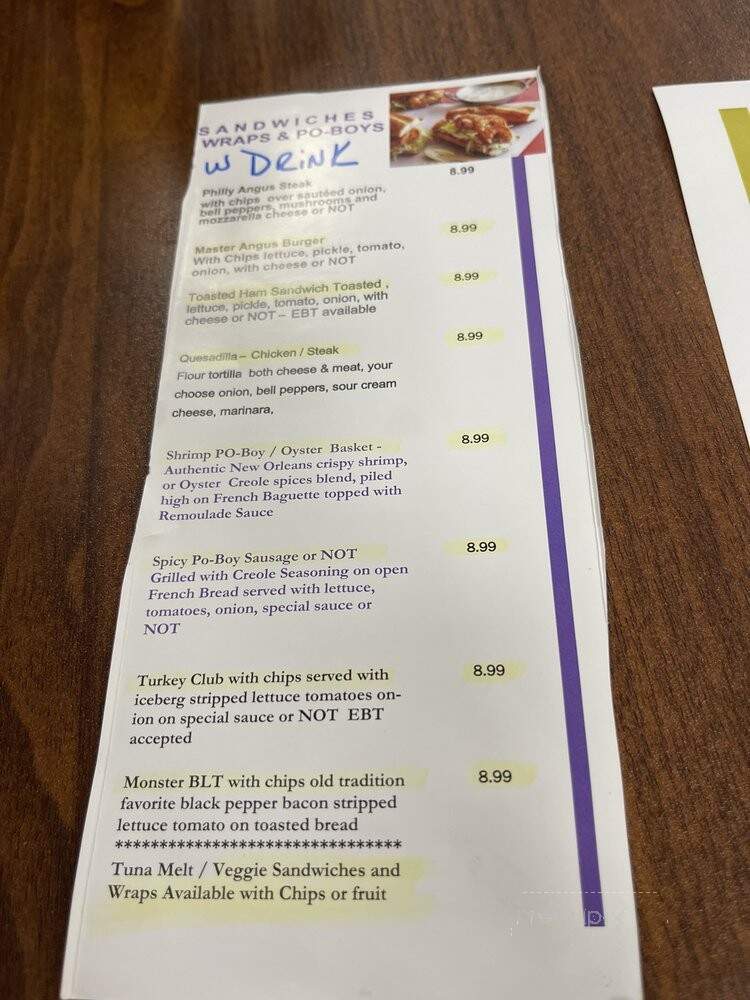 SANDWICHES
WRAPS & PO-BOYS
W DRiNK
Philly Angus Steak 8.99
with chips over sautéed onion,
bell peppers, mushrooms and
mozzarella cheese or NOT
Master Angus Burger 8.99
With Chips lettuce, pickle, tomato,
onion, with cheese or NOT
Toasted Ham Sandwich Toasted , 8.99
lettuce, pickle, tomato, onion, with
cheese or NOT – EBT available
Quesadilla – Chicken / Steak 8.99
Flour tortilla both cheese & meat, your
choose onion, bell peppers, sour cream
cheese, marinara,
Shrimp PO-Boy / Oyster Basket - 8.99
Authentic New Orleans crispy shrimp,
or Oyster Creole spices blend, piled
high on French Baguette topped with
Remoulade Sauce
Spicy Po-Boy Sausage or NOT 8.99
Grilled with Creole Seasoning on open
French Bread served with lettuce,
tomatoes, onion, special sauce or
NOT
Turkey Club with chips served with 8.99
iceberg stripped lettuce tomatoes on-
ion on special sauce or NOT EBT
accepted
Monster BLT with chips old tradition 8.99
favorite black pepper bacon stripped
lettuce tomato on toasted bread
********************************
Tuna Melt / Veggie Sandwiches and
Wraps Available with Chips or fruit